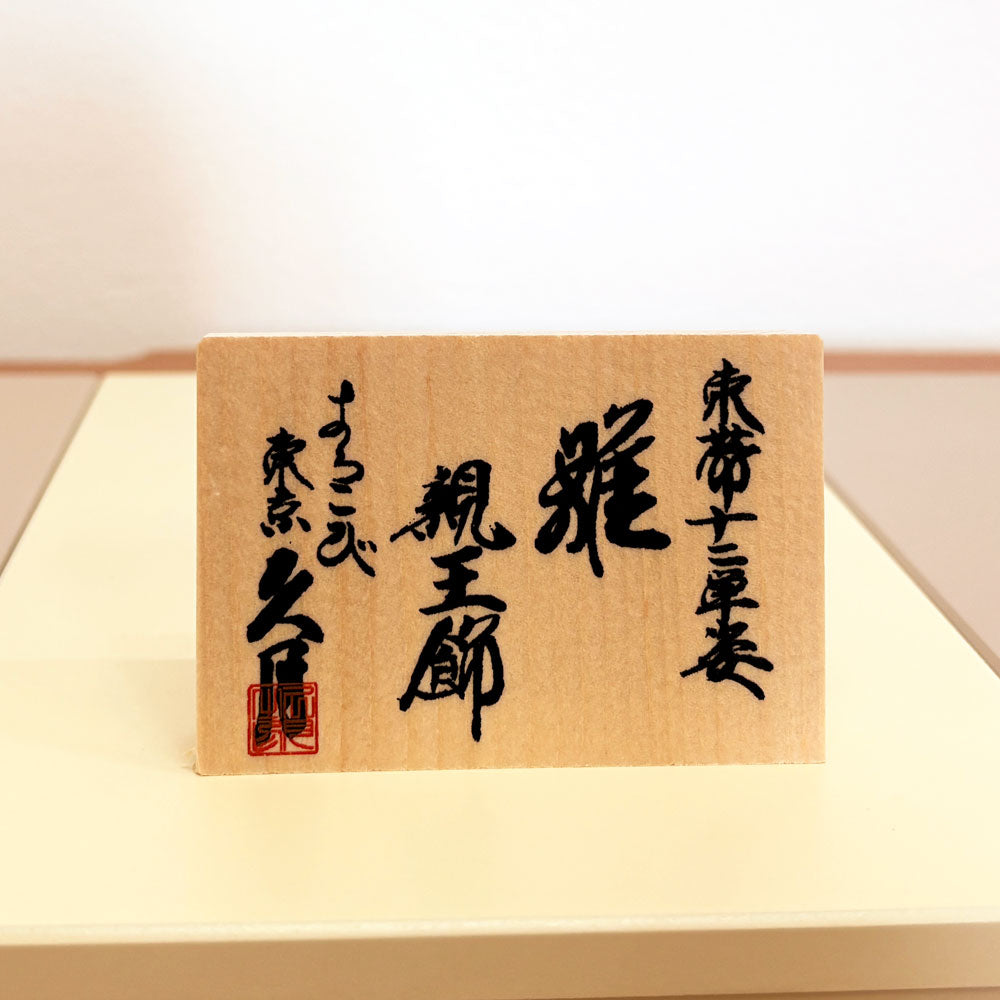 束帯十二単姿
雛
親王飾
よろこび
東京
久月